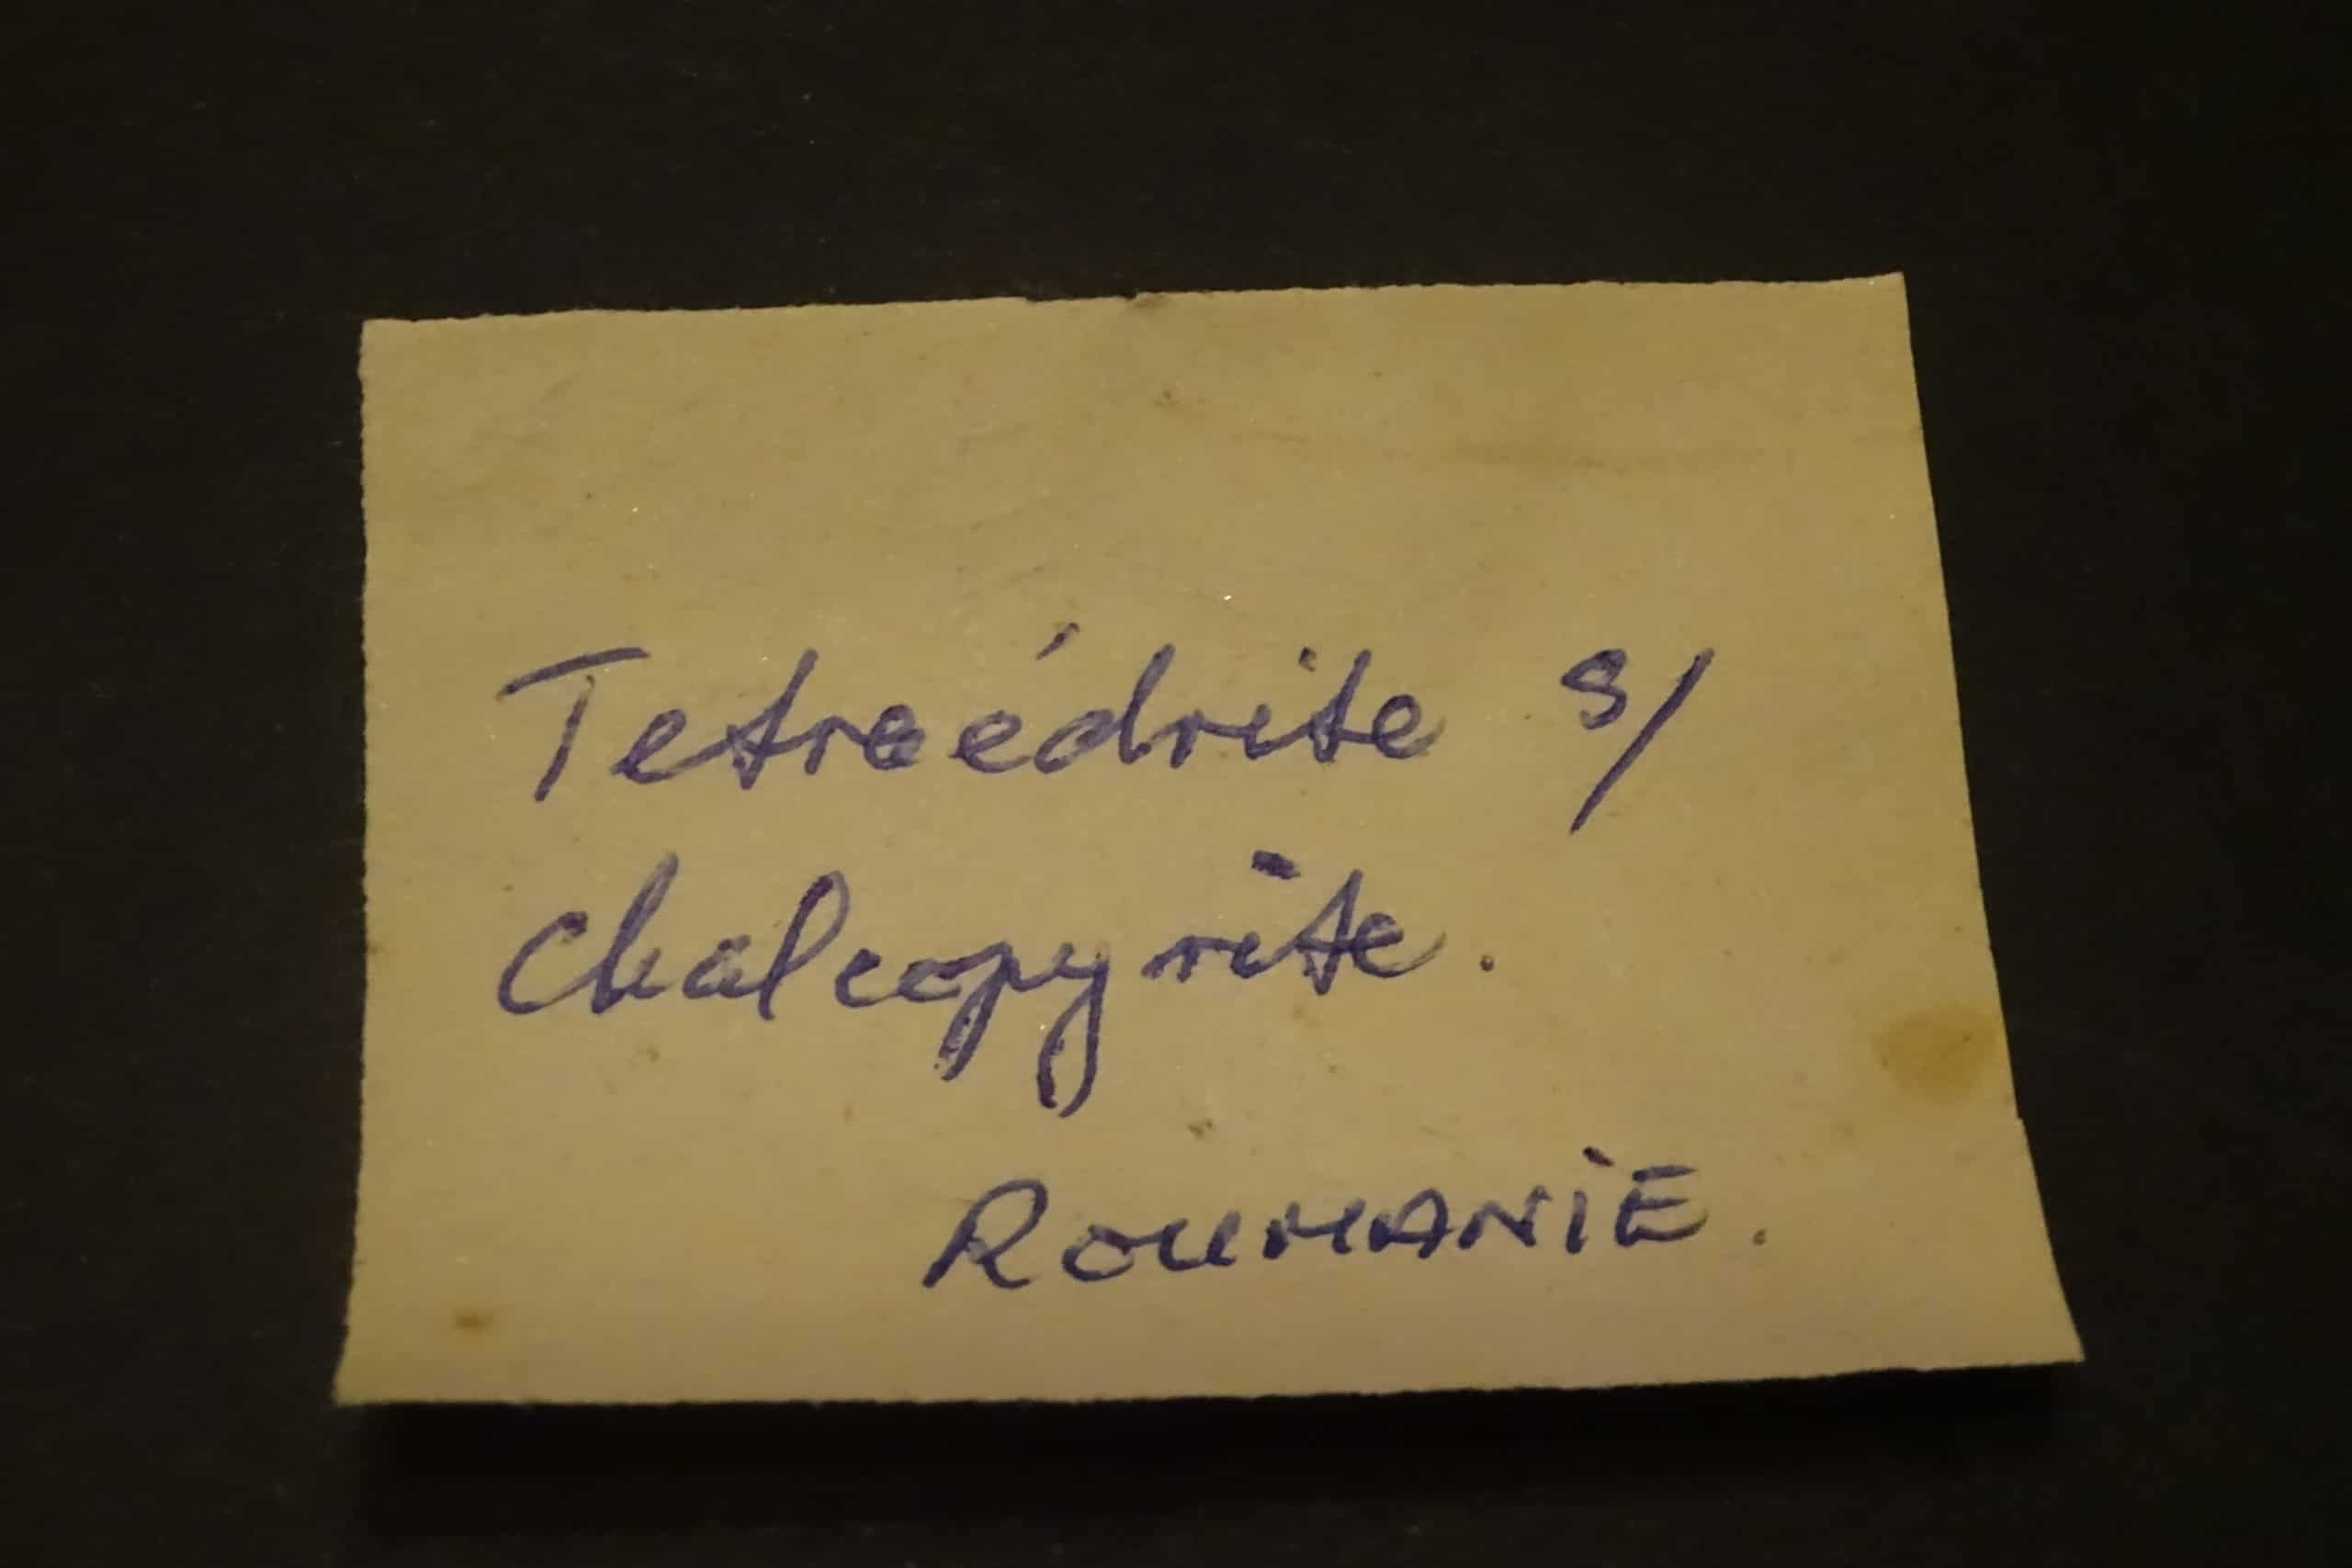 Tetraédrite s/
Chalcopyrite.
ROUMANIE.